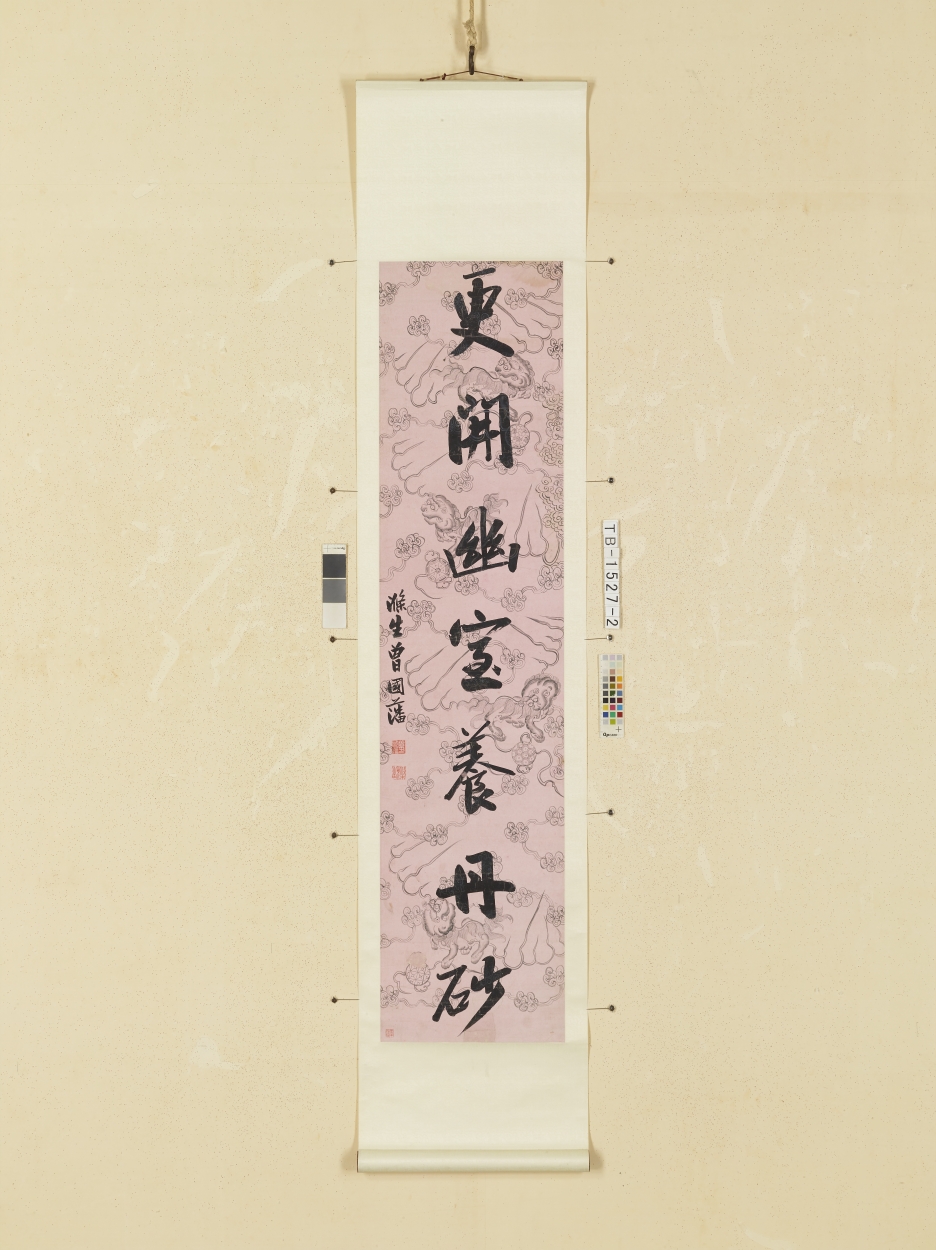 更開幽室養丹砂
滌生曾國藩
TB-1527-2